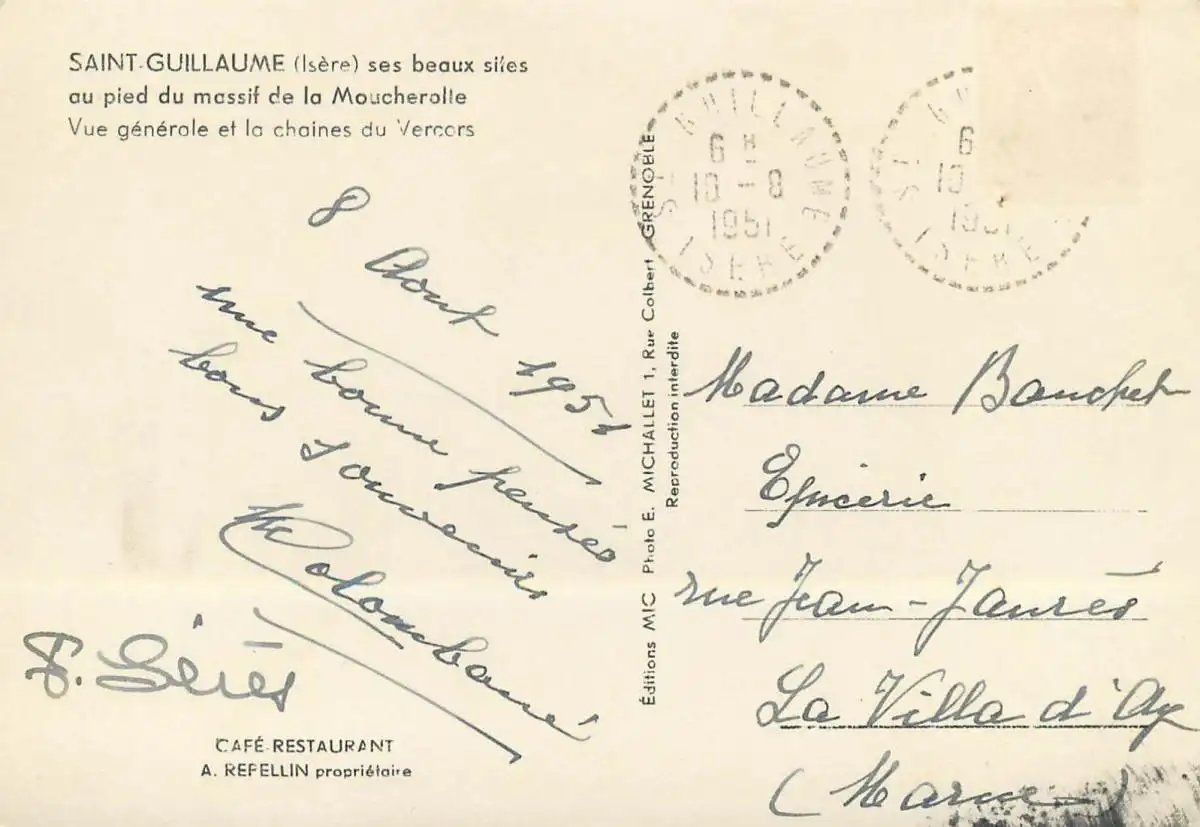 SAINT-GUILLAUME (Isère) ses beaux sites
au pied du massif de la Moucherolle
Vue générale et la chaines du Vercors
8 Aout 1951
une bonne pensée
bons souvenirs
Colombani
F. Serès
CAFÉ-RESTAURANT
A. REPELLIN propriétaire
Éditions MIC Photo E. MICHALLET 1, Rue Colbert GRENOBLE
Reproduction interdite
ST GUILLAUME
6 H
10 - 8
1951
ISERE
ST GU
6
10
1951
ISERE
Madame Banchet
Epicerie
rue Jean-Jaurés
La Villa d'Ay
(Marne)